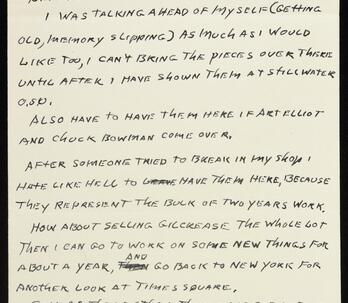 I WAS TALKING AHEAD OF MYSELF (GETTING
OLD, MEMORY SLIPPING) AS MUCH AS I WOULD
LIKE TOO, I CAN'T BRING THE PIECES OVER THERE
UNTIL AFTER I HAVE SHOWN THEM AT STILLWATER
O.S.U.
ALSO HAVE TO HAVE THEM HERE IF ART ELLIOT
AND CHUCK BOWMAN COME OVER.
AFTER SOMEONE TRIED TO BREAK IN MY SHOP I
HATE LIKE HELL TO LEAVE HAVE THEM HERE, BECAUSE
THEY REPRESENT THE BULK OF TWO YEARS WORK.
HOW ABOUT SELLING GILCREASE THE WHOLE LOT
THEN I CAN GO TO WORK ON SOME NEW THINGS FOR
ABOUT A YEAR, THEN AND GO BACK TO NEW YORK FOR
ANOTHER LOOK AT TIMES SQUARE.